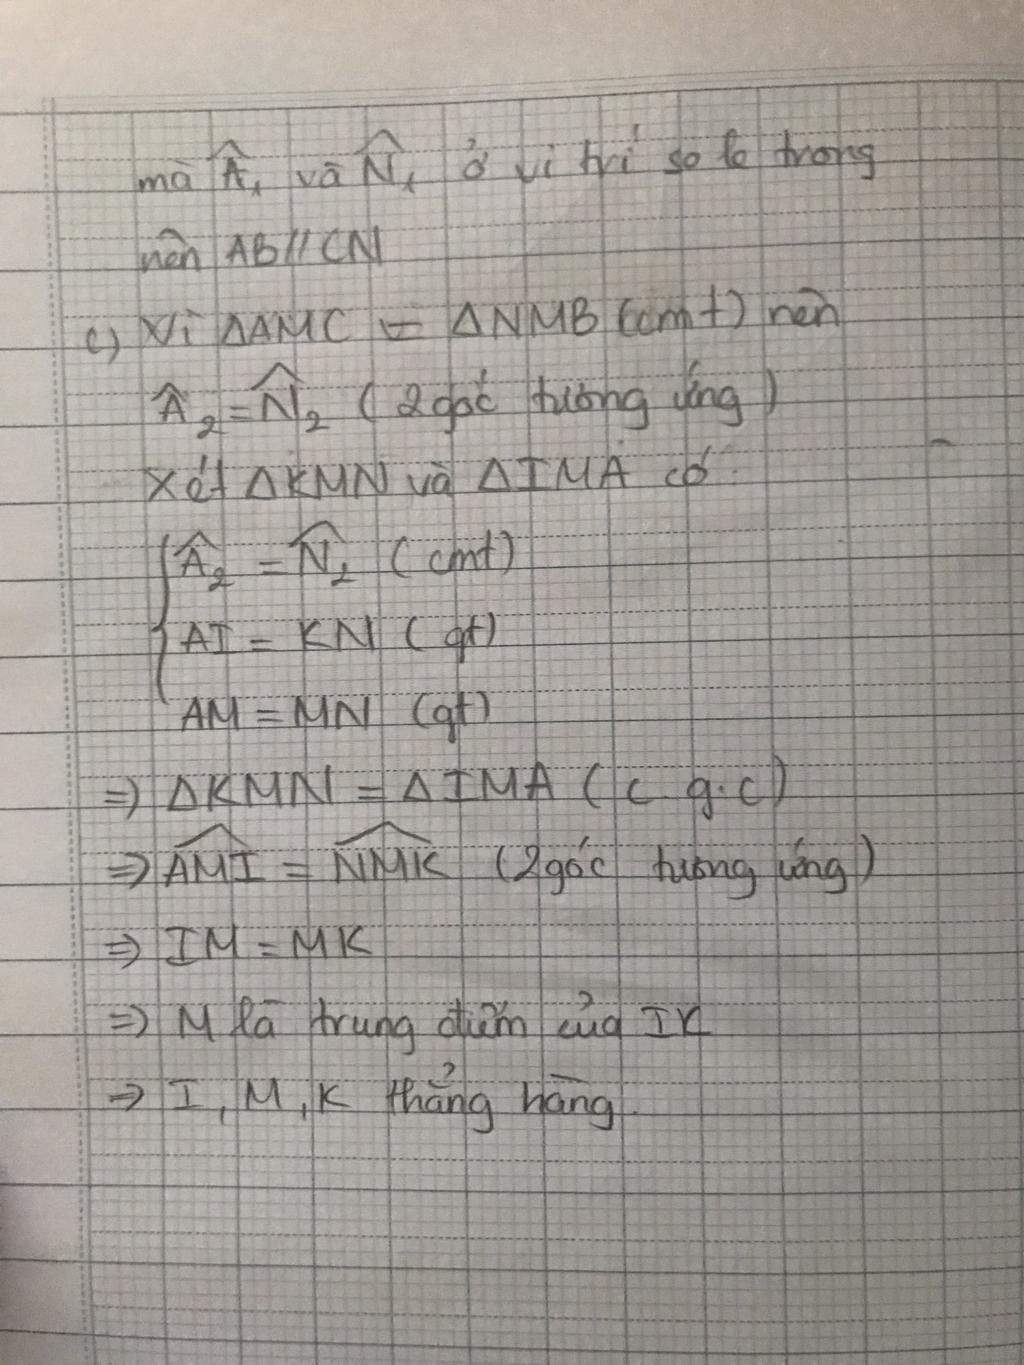 mà Â₁ và N̂₁ ở vị trí so le trong
nên AB//CN
c) Vì ΔAMC = ΔNMB (cmt) nên
Â₂ = N̂₂ (2 góc tương ứng)
Xét ΔKMN và ΔIMA có:
Â₂ = N̂₂ (cmt)
AI = KN (gt)
AM = MN (gt)
⇒ ΔKMN = ΔIMA (c g.c)
⇒ \widehat{AMI} = \widehat{NMK} (2 góc tương ứng)
⇒ IM = MK
⇒ M là trung điểm của IK
⇒ I, M, K thẳng hàng.